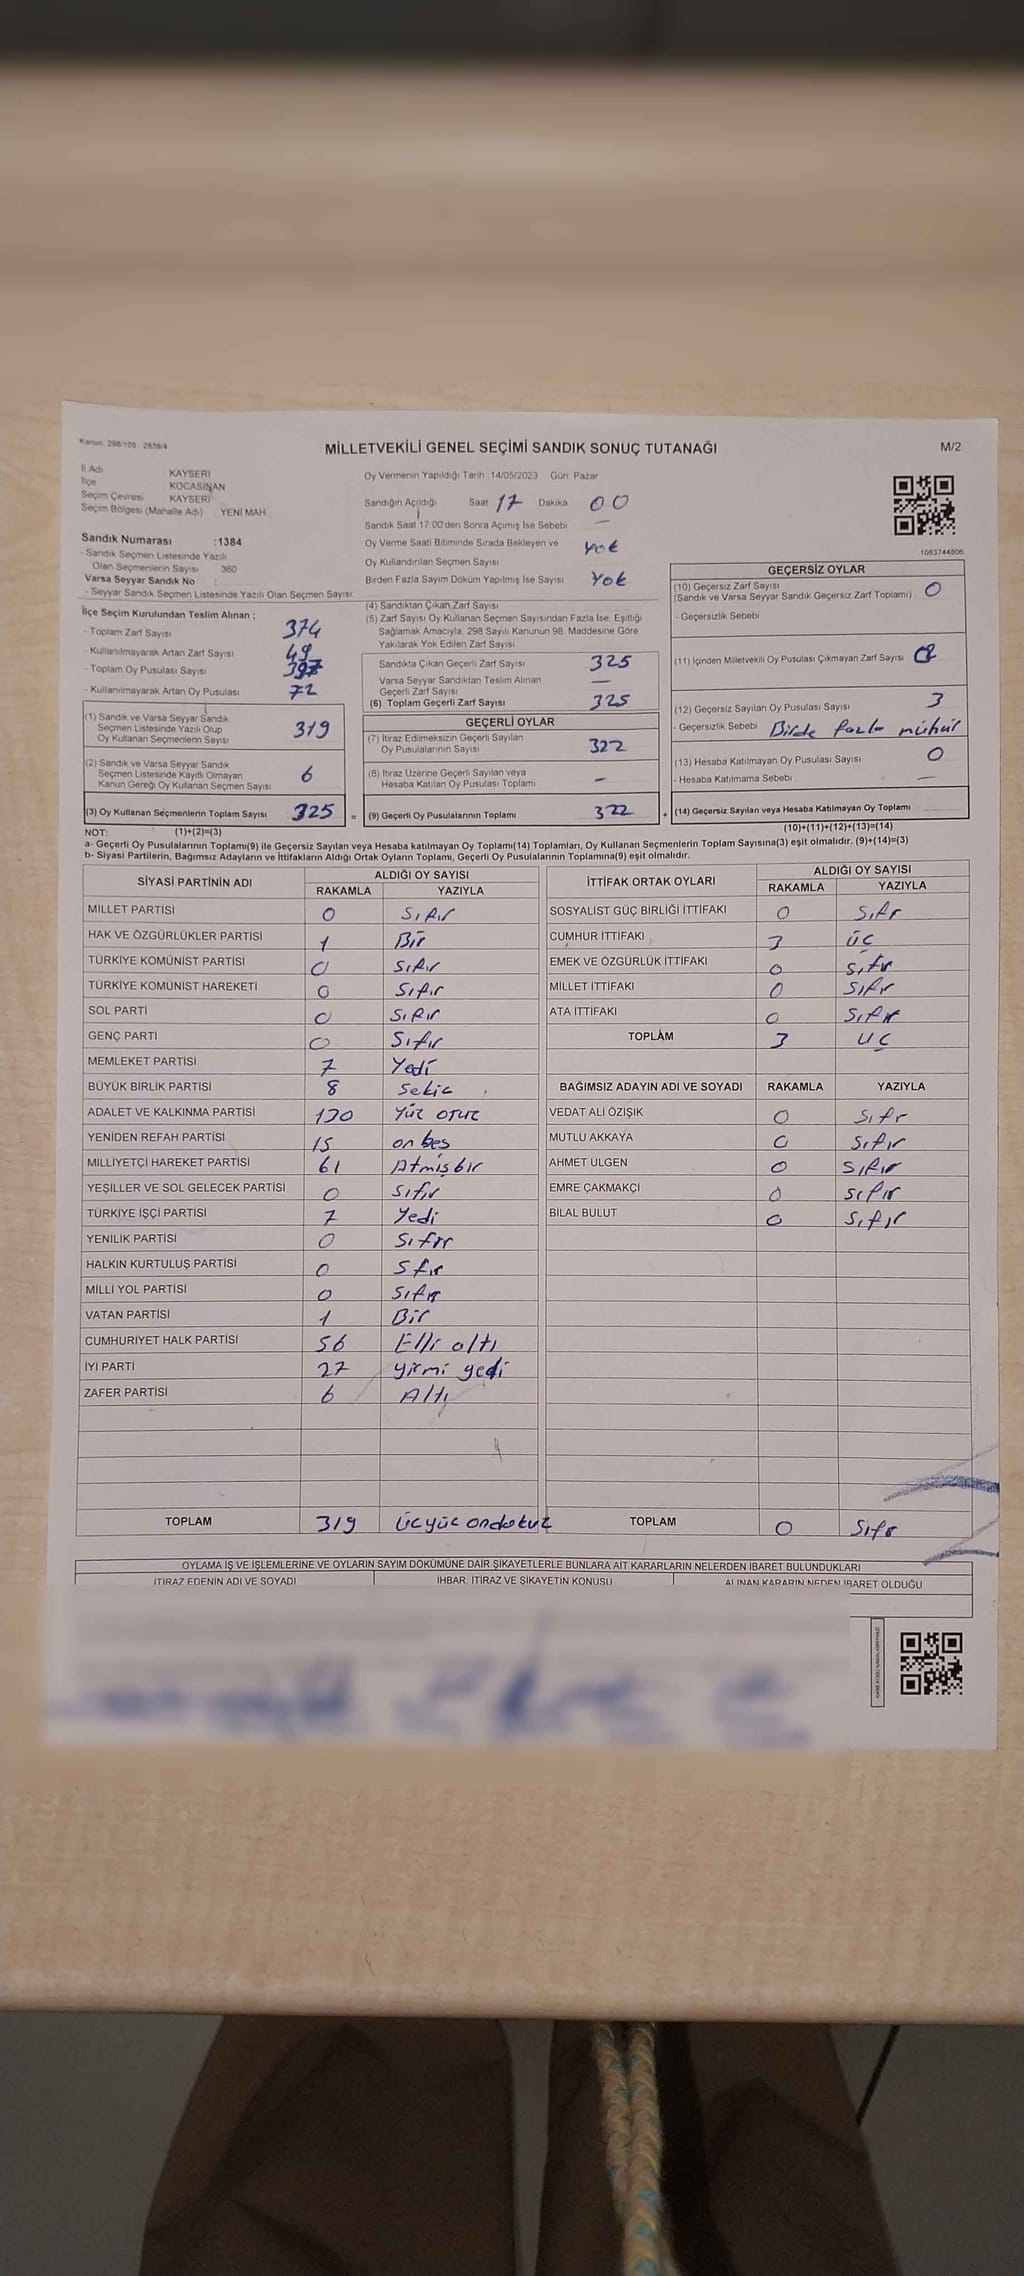 Kanun: 298/105 : 2839/4
MİLLETVEKİLİ GENEL SEÇİMİ SANDIK SONUÇ TUTANAĞI
M/2
İl Adı KAYSERİ
İlçe KOCASİNAN
Seçim Çevresi KAYSERİ
Seçim Bölgesi (Mahalle Adı) YENİ MAH.
Sandık Numarası :1384
- Sandık Seçmen Listesinde Yazılı
Olan Seçmenlerin Sayısı 360
Varsa Seyyar Sandık No :
- Seyyar Sandık Seçmen Listesinde Yazılı Olan Seçmen Sayısı:
İlçe Seçim Kurulundan Teslim Alınan ;
- Toplam Zarf Sayısı 374
- Kullanılmayarak Artan Zarf Sayısı 49
- Toplam Oy Pusulası Sayısı 397
- Kullanılmayarak Artan Oy Pusulası 72
(1) Sandık ve Varsa Seyyar Sandık
Seçmen Listesinde Yazılı Olup
Oy Kullanan Seçmenlerin Sayısı 319
(2) Sandık ve Varsa Seyyar Sandık
Seçmen Listesinde Kayıtlı Olmayan
Kanun Gereği Oy Kullanan Seçmen Sayısı 6
(3) Oy Kullanan Seçmenlerin Toplam Sayısı 325 =
Oy Vermenin Yapıldığı Tarih :14/05/2023 Gün: Pazar
Sandığın Açıldığı Saat 17 Dakika 00
Sandık Saat 17:00'den Sonra Açımış İse Sebebi —
Oy Verme Saati Bitiminde Sırada Bekleyen ve yok
Oy Kullandırılan Seçmen Sayısı
Birden Fazla Sayım Döküm Yapılmış İse Sayısı Yok
(4) Sandıktan Çıkan Zarf Sayısı
(5) Zarf Sayısı Oy Kullanan Seçmen Sayısından Fazla İse, Eşitliği
Sağlamak Amacıyla, 298 Sayılı Kanunun 98. Maddesine Göre
Yakılarak Yok Edilen Zarf Sayısı
Sandıkta Çıkan Geçerli Zarf Sayısı 325
Varsa Seyyar Sandıktan Teslim Alınan —
Geçerli Zarf Sayısı
(6) Toplam Geçerli Zarf Sayısı 325
GEÇERLİ OYLAR
(7) İtiraz Edilmeksizin Geçerli Sayılan
Oy Pusulalarının Sayısı 322
(8) İtiraz Üzerine Geçerli Sayılan veya
Hesaba Katılan Oy Pusulası Toplamı —
(9) Geçerli Oy Pusulalarının Toplamı 322 +
1063744806
GEÇERSİZ OYLAR
(10) Geçersiz Zarf Sayısı 0
(Sandık ve Varsa Seyyar Sandık Geçersiz Zarf Toplamı)
- Geçersizlik Sebebi
(11) İçinden Milletvekili Oy Pusulası Çıkmayan Zarf Sayısı
(12) Geçersiz Sayılan Oy Pusulası Sayısı 3
- Geçersizlik Sebebi : Birde fazla mühür
(13) Hesaba Katılmayan Oy Pusulası Sayısı 0
- Hesaba Katılmama Sebebi : —
(14) Geçersiz Sayılan veya Hesaba Katılmayan Oy Toplamı
NOT: (1)+(2)=(3) (10)+(11)+(12)+(13)=(14)
a- Geçerli Oy Pusulalarının Toplamı(9) ile Geçersiz Sayılan veya Hesaba katılmayan Oy Toplamı(14) Toplamları, Oy Kullanan Seçmenlerin Toplam Sayısına(3) eşit olmalıdır. (9)+(14)=(3)
b- Siyasi Partilerin, Bağımsız Adayların ve İttifakların Aldığı Ortak Oyların Toplamı, Geçerli Oy Pusulalarının Toplamına(9) eşit olmalıdır.
SİYASİ PARTİNİN ADI ALDIĞI OY SAYISI
RAKAMLA YAZIYLA
MİLLET PARTİSİ 0 Sıfır
HAK VE ÖZGÜRLÜKLER PARTİSİ 1 Bir
TÜRKİYE KOMÜNİST PARTİSİ 0 Sıfır
TÜRKİYE KOMÜNİST HAREKETİ 0 Sıfır
SOL PARTİ 0 Sıfır
GENÇ PARTİ 0 Sıfır
MEMLEKET PARTİSİ 7 Yedi
BÜYÜK BİRLİK PARTİSİ 8 Sekiz
ADALET VE KALKINMA PARTİSİ 130 Yüz otuz
YENİDEN REFAH PARTİSİ 15 on beş
MİLLİYETÇİ HAREKET PARTİSİ 61 Atmışbir
YEŞİLLER VE SOL GELECEK PARTİSİ 0 Sıfır
TÜRKİYE İŞÇİ PARTİSİ 7 Yedi
YENİLİK PARTİSİ 0 Sıfır
HALKIN KURTULUŞ PARTİSİ 0 Sfır
MİLLİ YOL PARTİSİ 0 Sıfır
VATAN PARTİSİ 1 Bir
CUMHURİYET HALK PARTİSİ 56 Elli altı
İYİ PARTİ 27 yirmi yedi
ZAFER PARTİSİ 6 Altı
TOPLAM 319 Üçyüz ondokuz
İTTİFAK ORTAK OYLARI ALDIĞI OY SAYISI
RAKAMLA YAZIYLA
SOSYALİST GÜÇ BİRLİĞİ İTTİFAKI 0 Sıfr
CUMHUR İTTİFAKI 3 üç
EMEK VE ÖZGÜRLÜK İTTİFAKI 0 Sıfır
MİLLET İTTİFAKI 0 Sıfır
ATA İTTİFAKI 0 Sıfır
TOPLAM 3 uç
BAĞIMSIZ ADAYIN ADI VE SOYADI RAKAMLA YAZIYLA
VEDAT ALİ ÖZIŞIK 0 Sıfr
MUTLU AKKAYA 0 Sıfır
AHMET ÜLGEN 0 Sıfır
EMRE ÇAKMAKÇİ 0 Sıfır
BİLAL BULUT 0 Sıfır
TOPLAM 0 Sıfr
OYLAMA İŞ VE İŞLEMLERİNE VE OYLARIN SAYIM DÖKÜMÜNE DAİR ŞİKAYETLERLE BUNLARA AİT KARARLARIN NELERDEN İBARET BULUNDUKLARI
İTİRAZ EDENİN ADI VE SOYADI İHBAR, İTİRAZ VE ŞİKAYETİN KONUSU ALINAN KARARIN NEDEN İBARET OLDUĞU